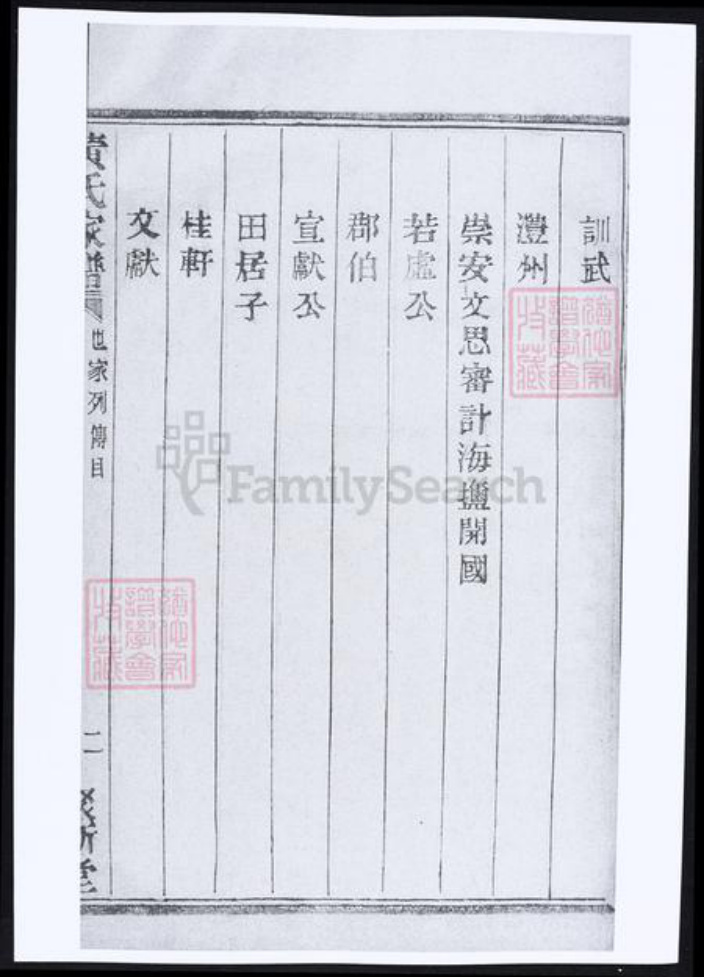 訓武
灃州
崇安文思審計海鹽開國
若虛公
郡伯
宣獻公
田居子
桂軒
文獻
黄氏家譜 世家列傳目 二
FamilySearch